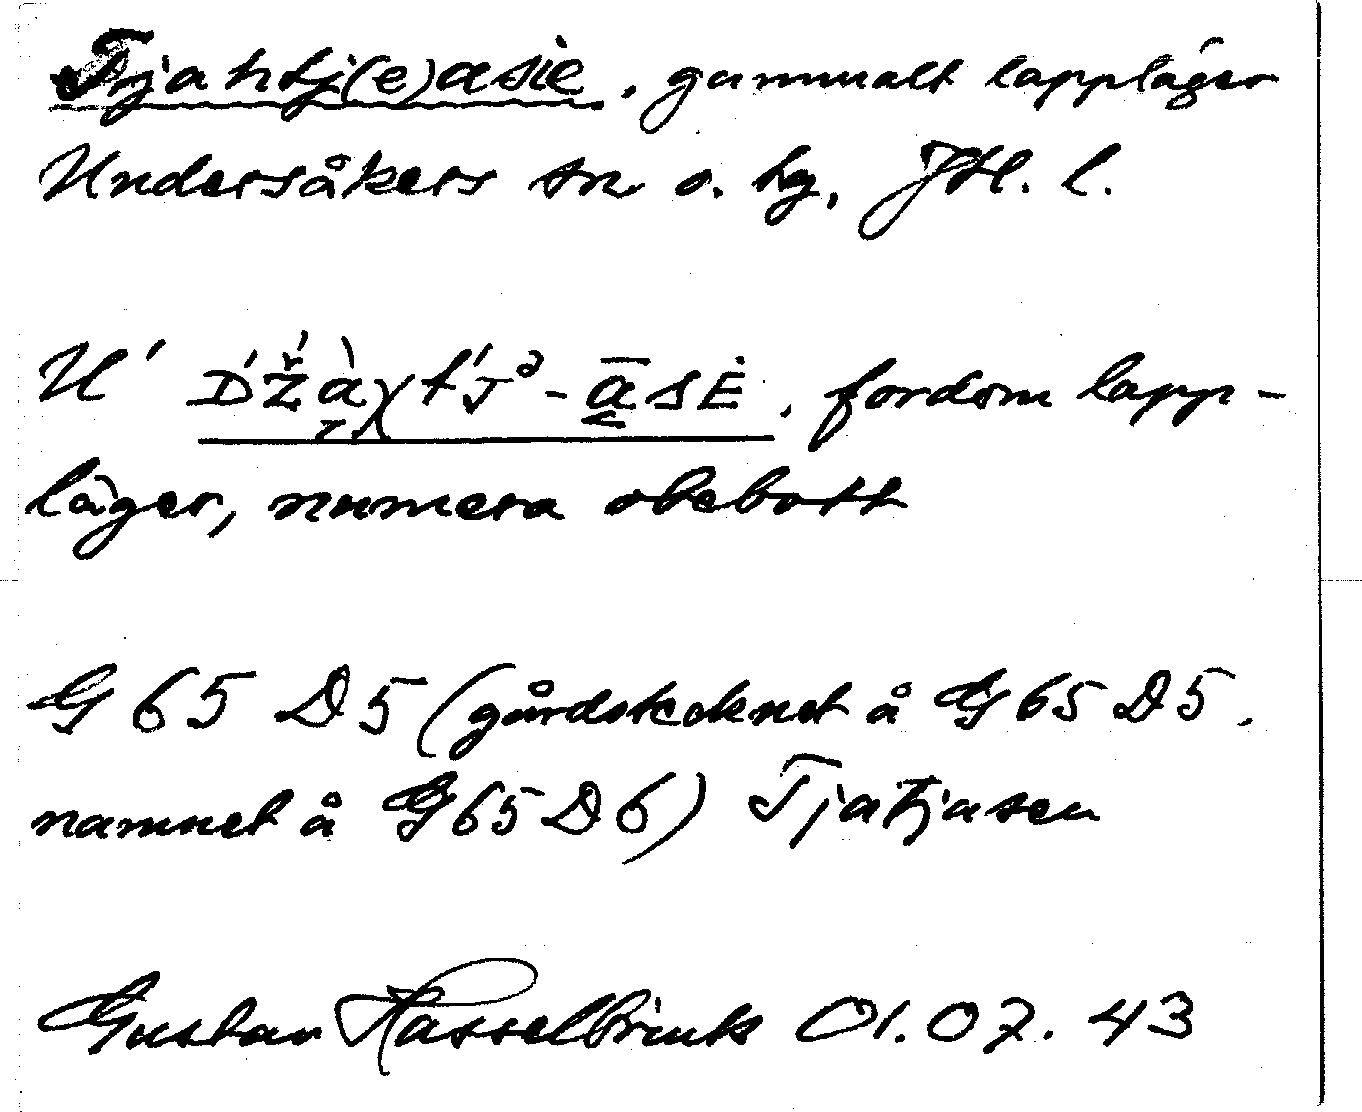 Tjahtj(e)asie, gammalt lappläger
Undersåkers sn o. hg, JH. l.
U' D́Ž́àχt́J̌ᵊ-a̅sĖ, fordom lapp-
läger, numera obebott
G 65 D5 (gårdstecknet å G65 D5.
namnet å G65 D6) Tjatjasen
Gustav Hasselbrink 01.07.43